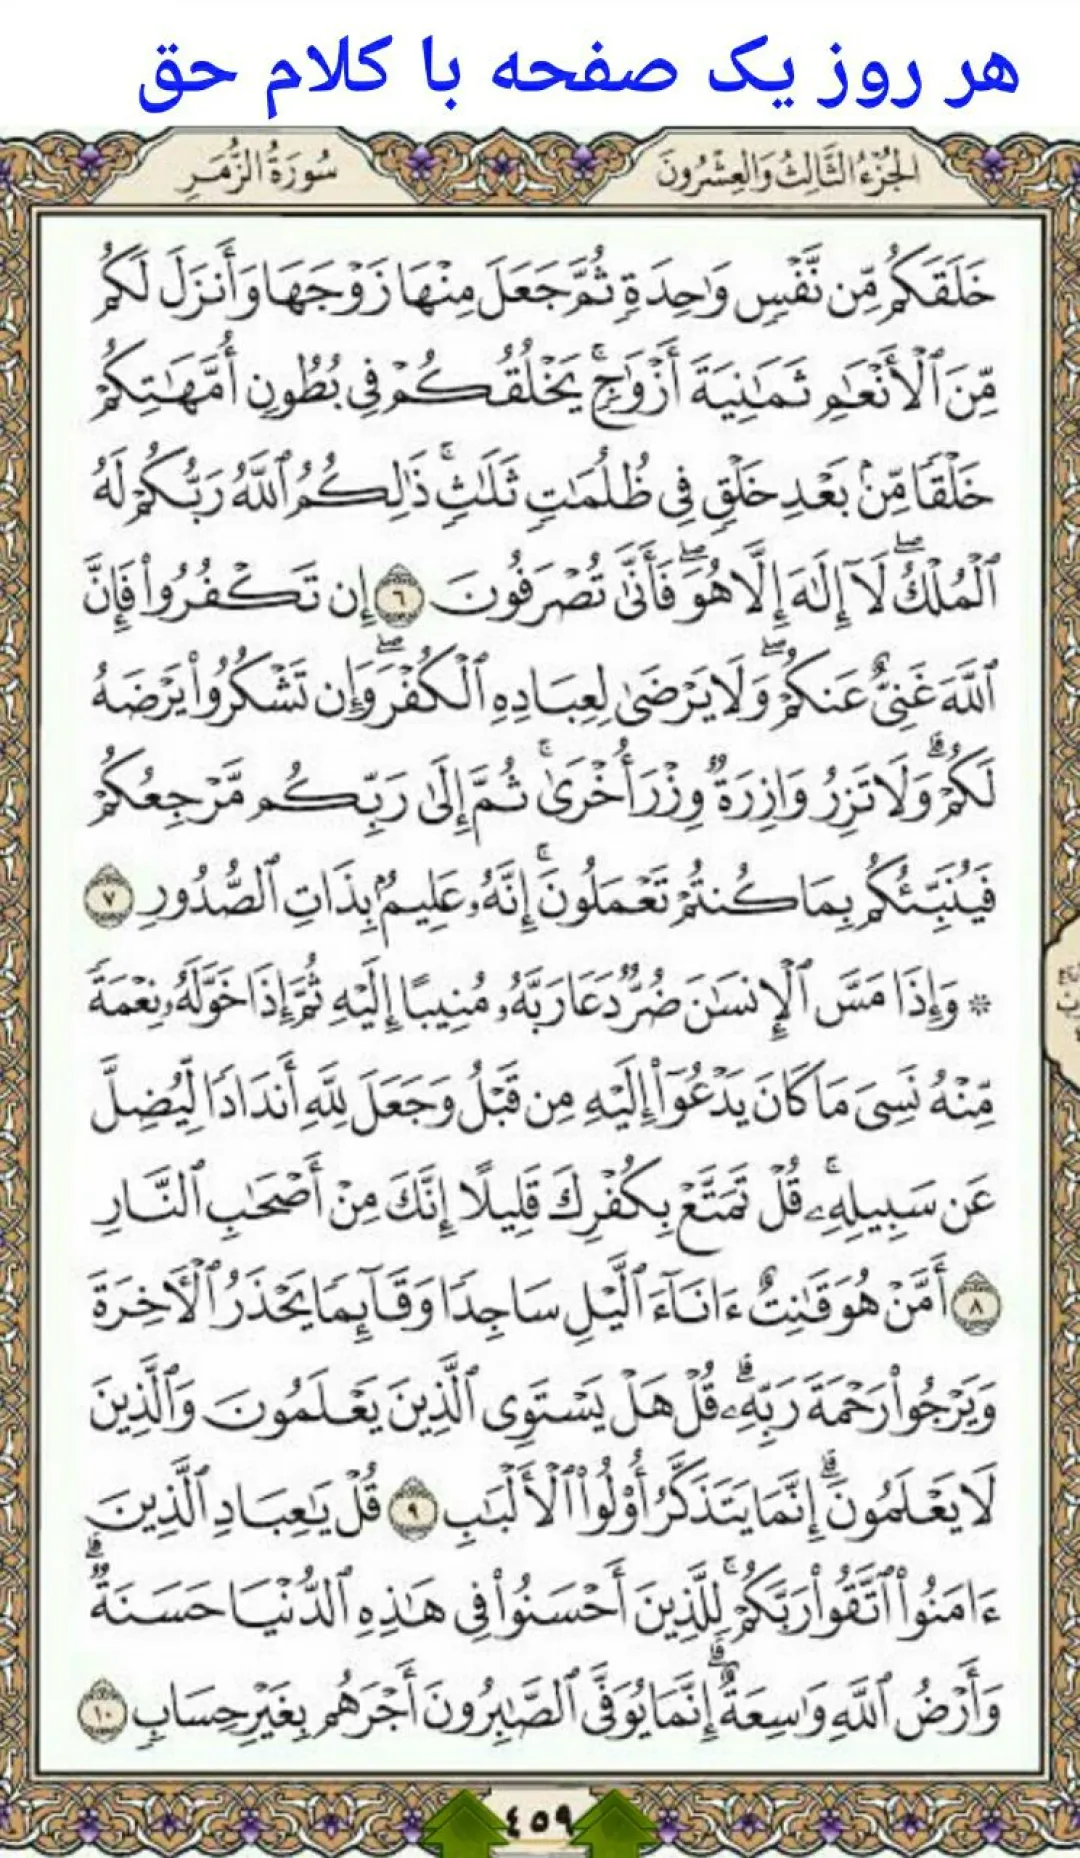 هر روز یک صفحه با کلام حق
الجُزْءُ الثَّالِثُ وَالعِشْرُونَ
سُورَةُ الزُّمَرِ
خَلَقَكُم مِّن نَّفْسٍ وَٰحِدَةٍ ثُمَّ جَعَلَ مِنْهَا زَوْجَهَا وَأَنزَلَ لَكُم
مِّنَ ٱلْأَنْعَٰمِ ثَمَٰنِيَةَ أَزْوَٰجٍ ۚ يَخْلُقُكُمْ فِى بُطُونِ أُمَّهَٰتِكُمْ
خَلْقًا مِّنۢ بَعْدِ خَلْقٍ فِى ظُلُمَٰتٍ ثَلَٰثٍ ۚ ذَٰلِكُمُ ٱللَّهُ رَبُّكُمْ لَهُ
ٱلْمُلْكُ ۖ لَآ إِلَٰهَ إِلَّا هُوَ ۖ فَأَنَّىٰ تُصْرَفُونَ ٦ إِن تَكْفُرُوا۟ فَإِنَّ
ٱللَّهَ غَنِىٌّ عَنكُمْ ۖ وَلَا يَرْضَىٰ لِعِبَادِهِ ٱلْكُفْرَ ۖ وَإِن تَشْكُرُوا۟ يَرْضَهُ
لَكُمْ ۗ وَلَا تَزِرُ وَازِرَةٌ وِزْرَ أُخْرَىٰ ۚ ثُمَّ إِلَىٰ رَبِّكُم مَّرْجِعُكُمْ
فَيُنَبِّئُكُم بِمَا كُنتُمْ تَعْمَلُونَ ۚ إِنَّهُۥ عَلِيمٌۢ بِذَاتِ ٱلصُّدُورِ ٧
۞ وَإِذَا مَسَّ ٱلْإِنسَٰنَ ضُرٌّ دَعَا رَبَّهُۥ مُنِيبًا إِلَيْهِ ثُمَّ إِذَا خَوَّلَهُۥ نِعْمَةً
مِّنْهُ نَسِىَ مَا كَانَ يَدْعُوٓا۟ إِلَيْهِ مِن قَبْلُ وَجَعَلَ لِلَّهِ أَندَادًا لِّيُضِلَّ
عَن سَبِيلِهِۦ ۚ قُلْ تَمَتَّعْ بِكُفْرِكَ قَلِيلًا إِنَّكَ مِنْ أَصْحَٰبِ ٱلنَّارِ
٨ أَمَّنْ هُوَ قَٰنِتٌ ءَانَآءَ ٱلَّيْلِ سَاجِدًا وَقَآئِمًا يَحْذَرُ ٱلْءَاخِرَةَ
وَيَرْجُوا۟ رَحْمَةَ رَبِّهِۦ ۗ قُلْ هَلْ يَسْتَوِى ٱلَّذِينَ يَعْلَمُونَ وَٱلَّذِينَ
لَا يَعْلَمُونَ ۗ إِنَّمَا يَتَذَكَّرُ أُو۟لُوا۟ ٱلْأَلْبَٰبِ ٩ قُلْ يَٰعِبَادِ ٱلَّذِينَ
ءَامَنُوا۟ ٱتَّقُوا۟ رَبَّكُمْ ۚ لِلَّذِينَ أَحْسَنُوا۟ فِى هَٰذِهِ ٱلدُّنْيَا حَسَنَةٌ ۗ
وَأَرْضُ ٱللَّهِ وَٰسِعَةٌ ۗ إِنَّمَا يُوَفَّى ٱلصَّٰبِرُونَ أَجْرَهُم بِغَيْرِ حِسَابٍ ١٠
٤٥٩